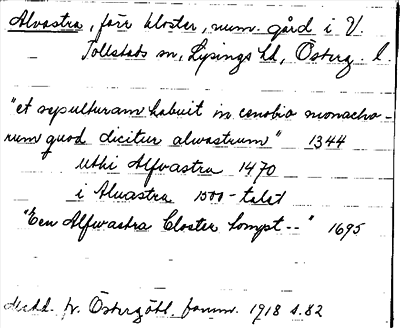 Alvastra, förr kloster, num. gård i V.
Tollstads sn, Lysings hd, Österg. l.
"et sepulturam habuit in cenobio monacho-
rum quod dicitur alwastrum" 1344
uthi Alfvastra 1470
i Aluastra 1500-talet
"Een Alfwastra Closter tompt --" 1695
Medd. fr. Östergötl. fornm. 1918 s. 82